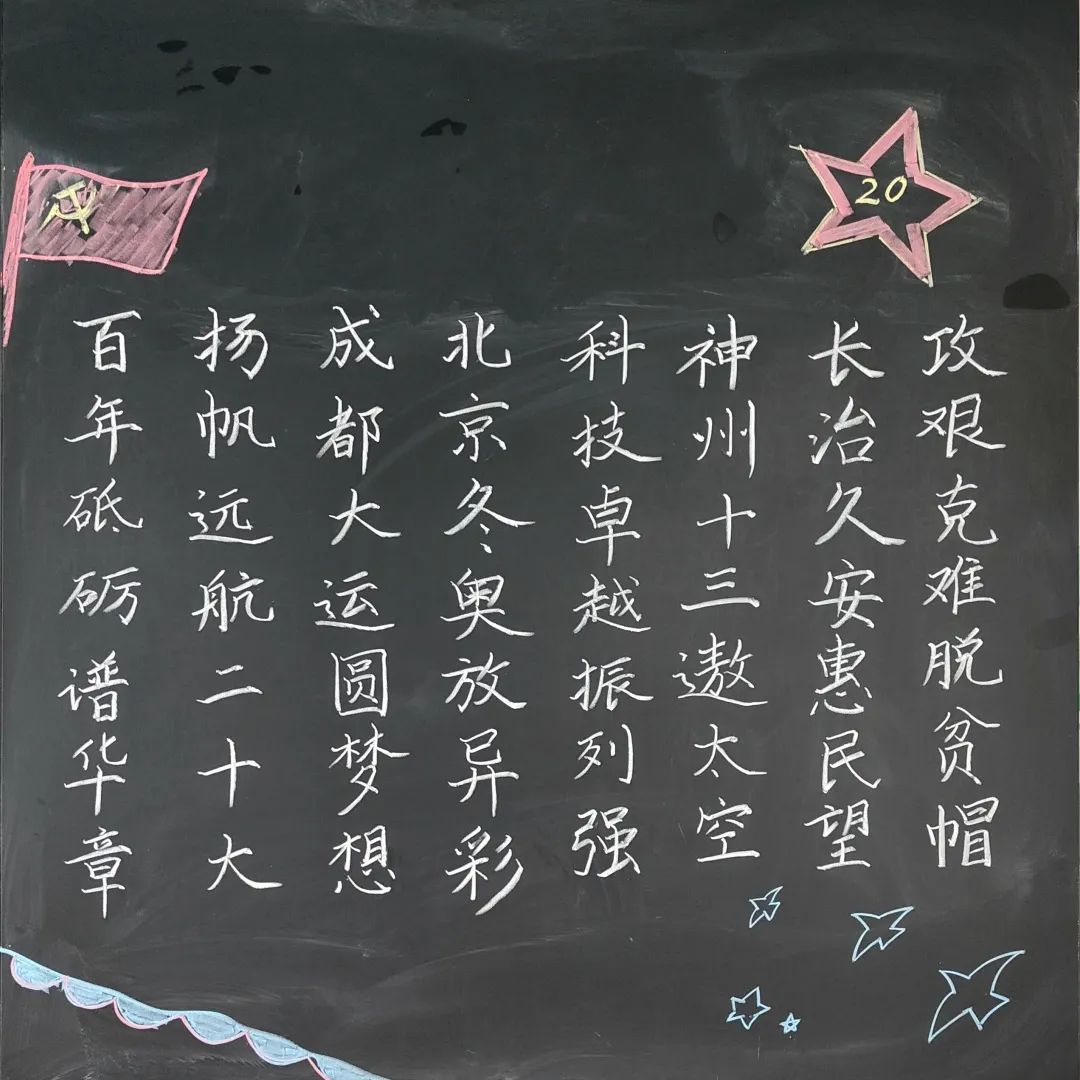 20
攻艰克难脱贫帽
长治久安惠民望
神州十三遨太空
科技卓越振列强
北京冬奥放异彩
成都大运圆梦想
扬帆远航二十大
百年砥砺谱华章